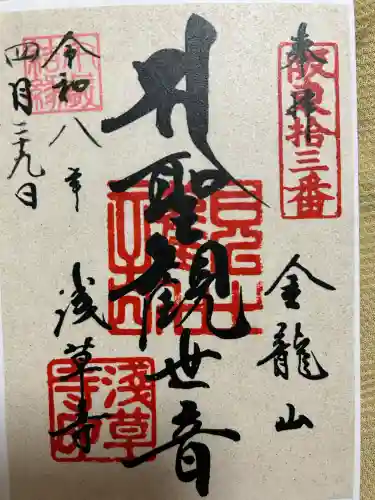 奉拝
坂東拾三番
金龍山
聖観世音
浅草寺
令和八年
四月二十九日
浅草